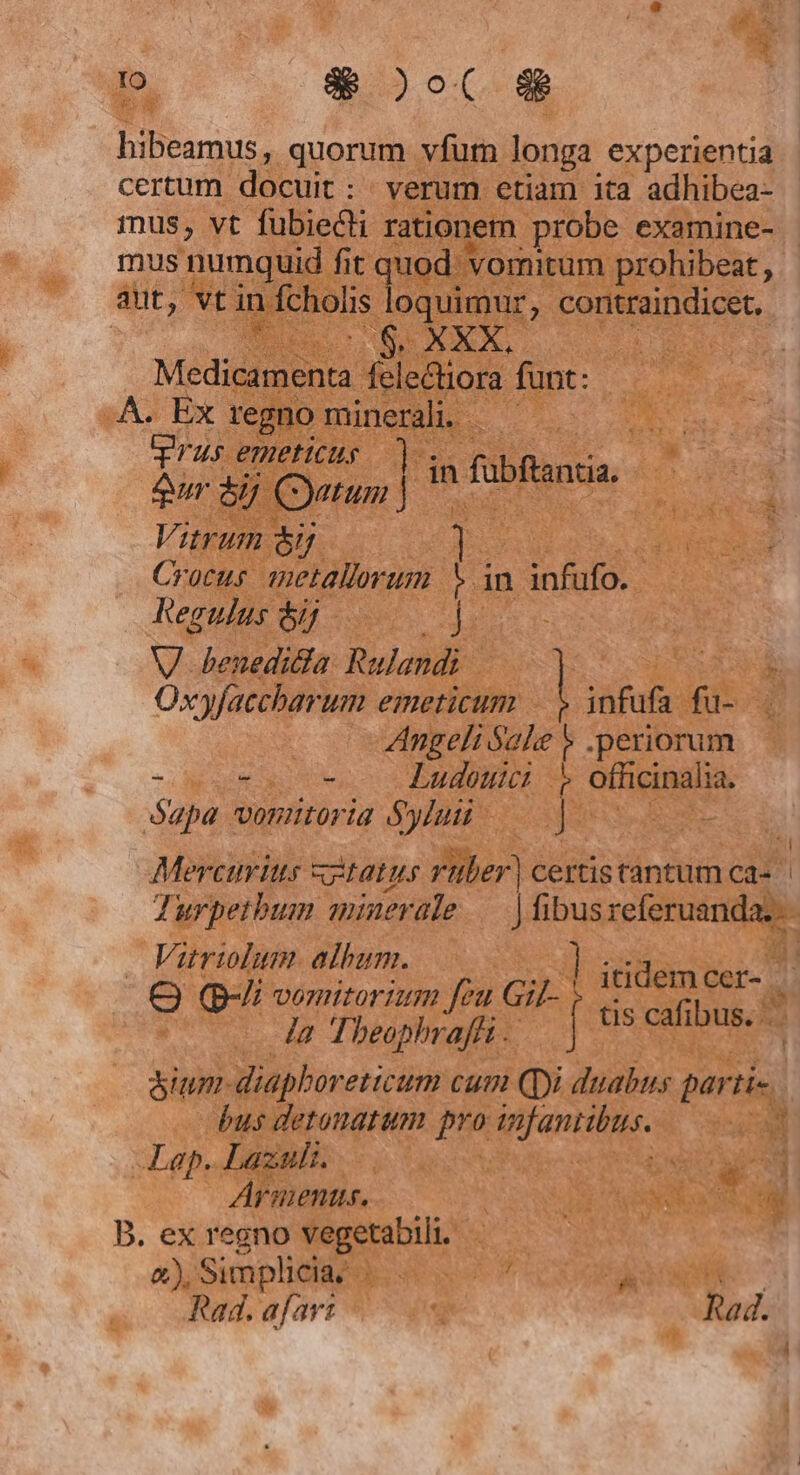 10 ❀ )o( ❀
hibeamus, quorum vſum longa experientia
certum docuit: verum etiam ita adhibea-
mus, vt ſubiecti rationem probe examine-
mus numquid ſit quod vomitum prohibeat,
aut, vt in ſcholis loquimur, contraindicet.
§. XXX.
Medicamenta ſelectiora ſunt:
A. Ex regno minerali.
☿rus emeticus ] in ſubſtantia.
♁ij ☉atum ]
Vitrum ♁ij ]
Crocus metallorum } in infuſo.
Regulus ♁ij ]
▽ benedicta Rulandi ]
Oxyſaccharum emeticum } infuſa ſu-
Angeli Sale } periorum
- - - Ludouici } officinalia.
Sapa vomitoria Syluii ]
Mercurius ꝓ̄itatus ruber ] certis tantum ca-
Turpethum minerale ] ſibus referuanda.
Vitriolum album. ] itidem cer-
🜔 ⊕-li vomitorium ſeu Gil- } tis caſibus.
la Theophraſti. ]
♁ium diaphoreticum cum ⦶i duabus parti-
bus detonatum pro infantibus.
Lap. Lazuli.
Armenus.
B. ex regno vegetabili.
α), Simplicia.
Rad. aſari
Rad.